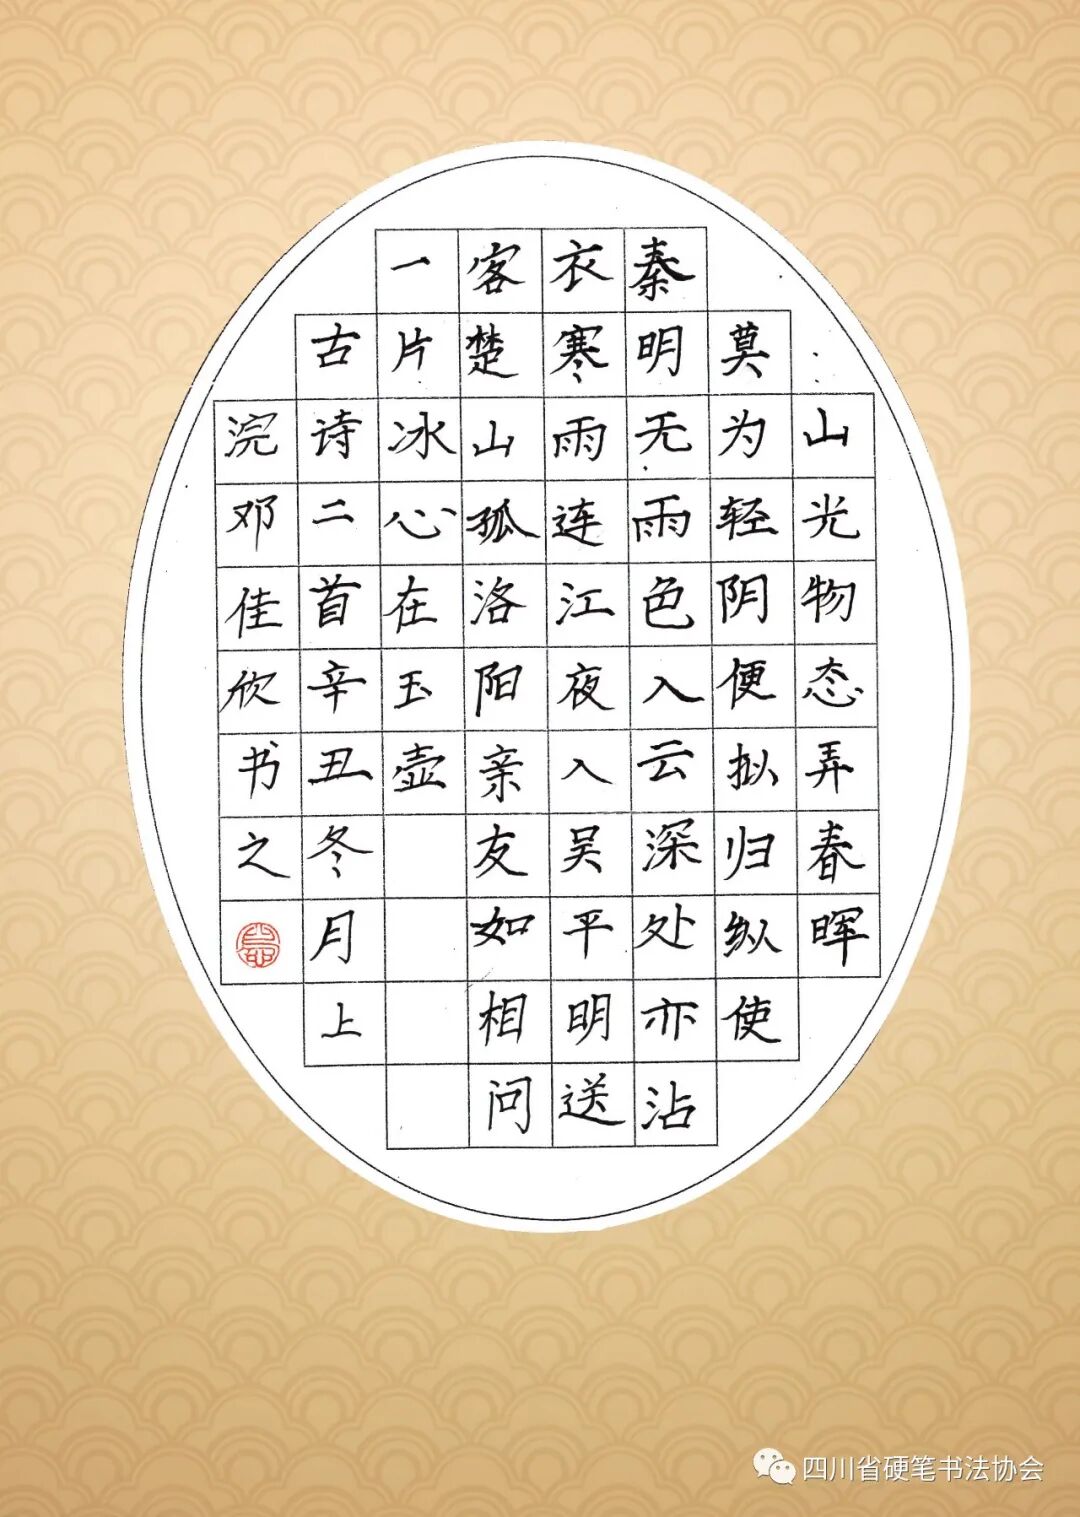 山光物态弄春晖
莫为轻阴便拟归纵使
秦明无雨色入云深处亦沾
衣寒雨连江夜入吴平明送
客楚山孤洛阳亲友如相问
一片冰心在玉壶
古诗二首辛丑冬月上
浣邓佳欣书之
四川省硬笔书法协会